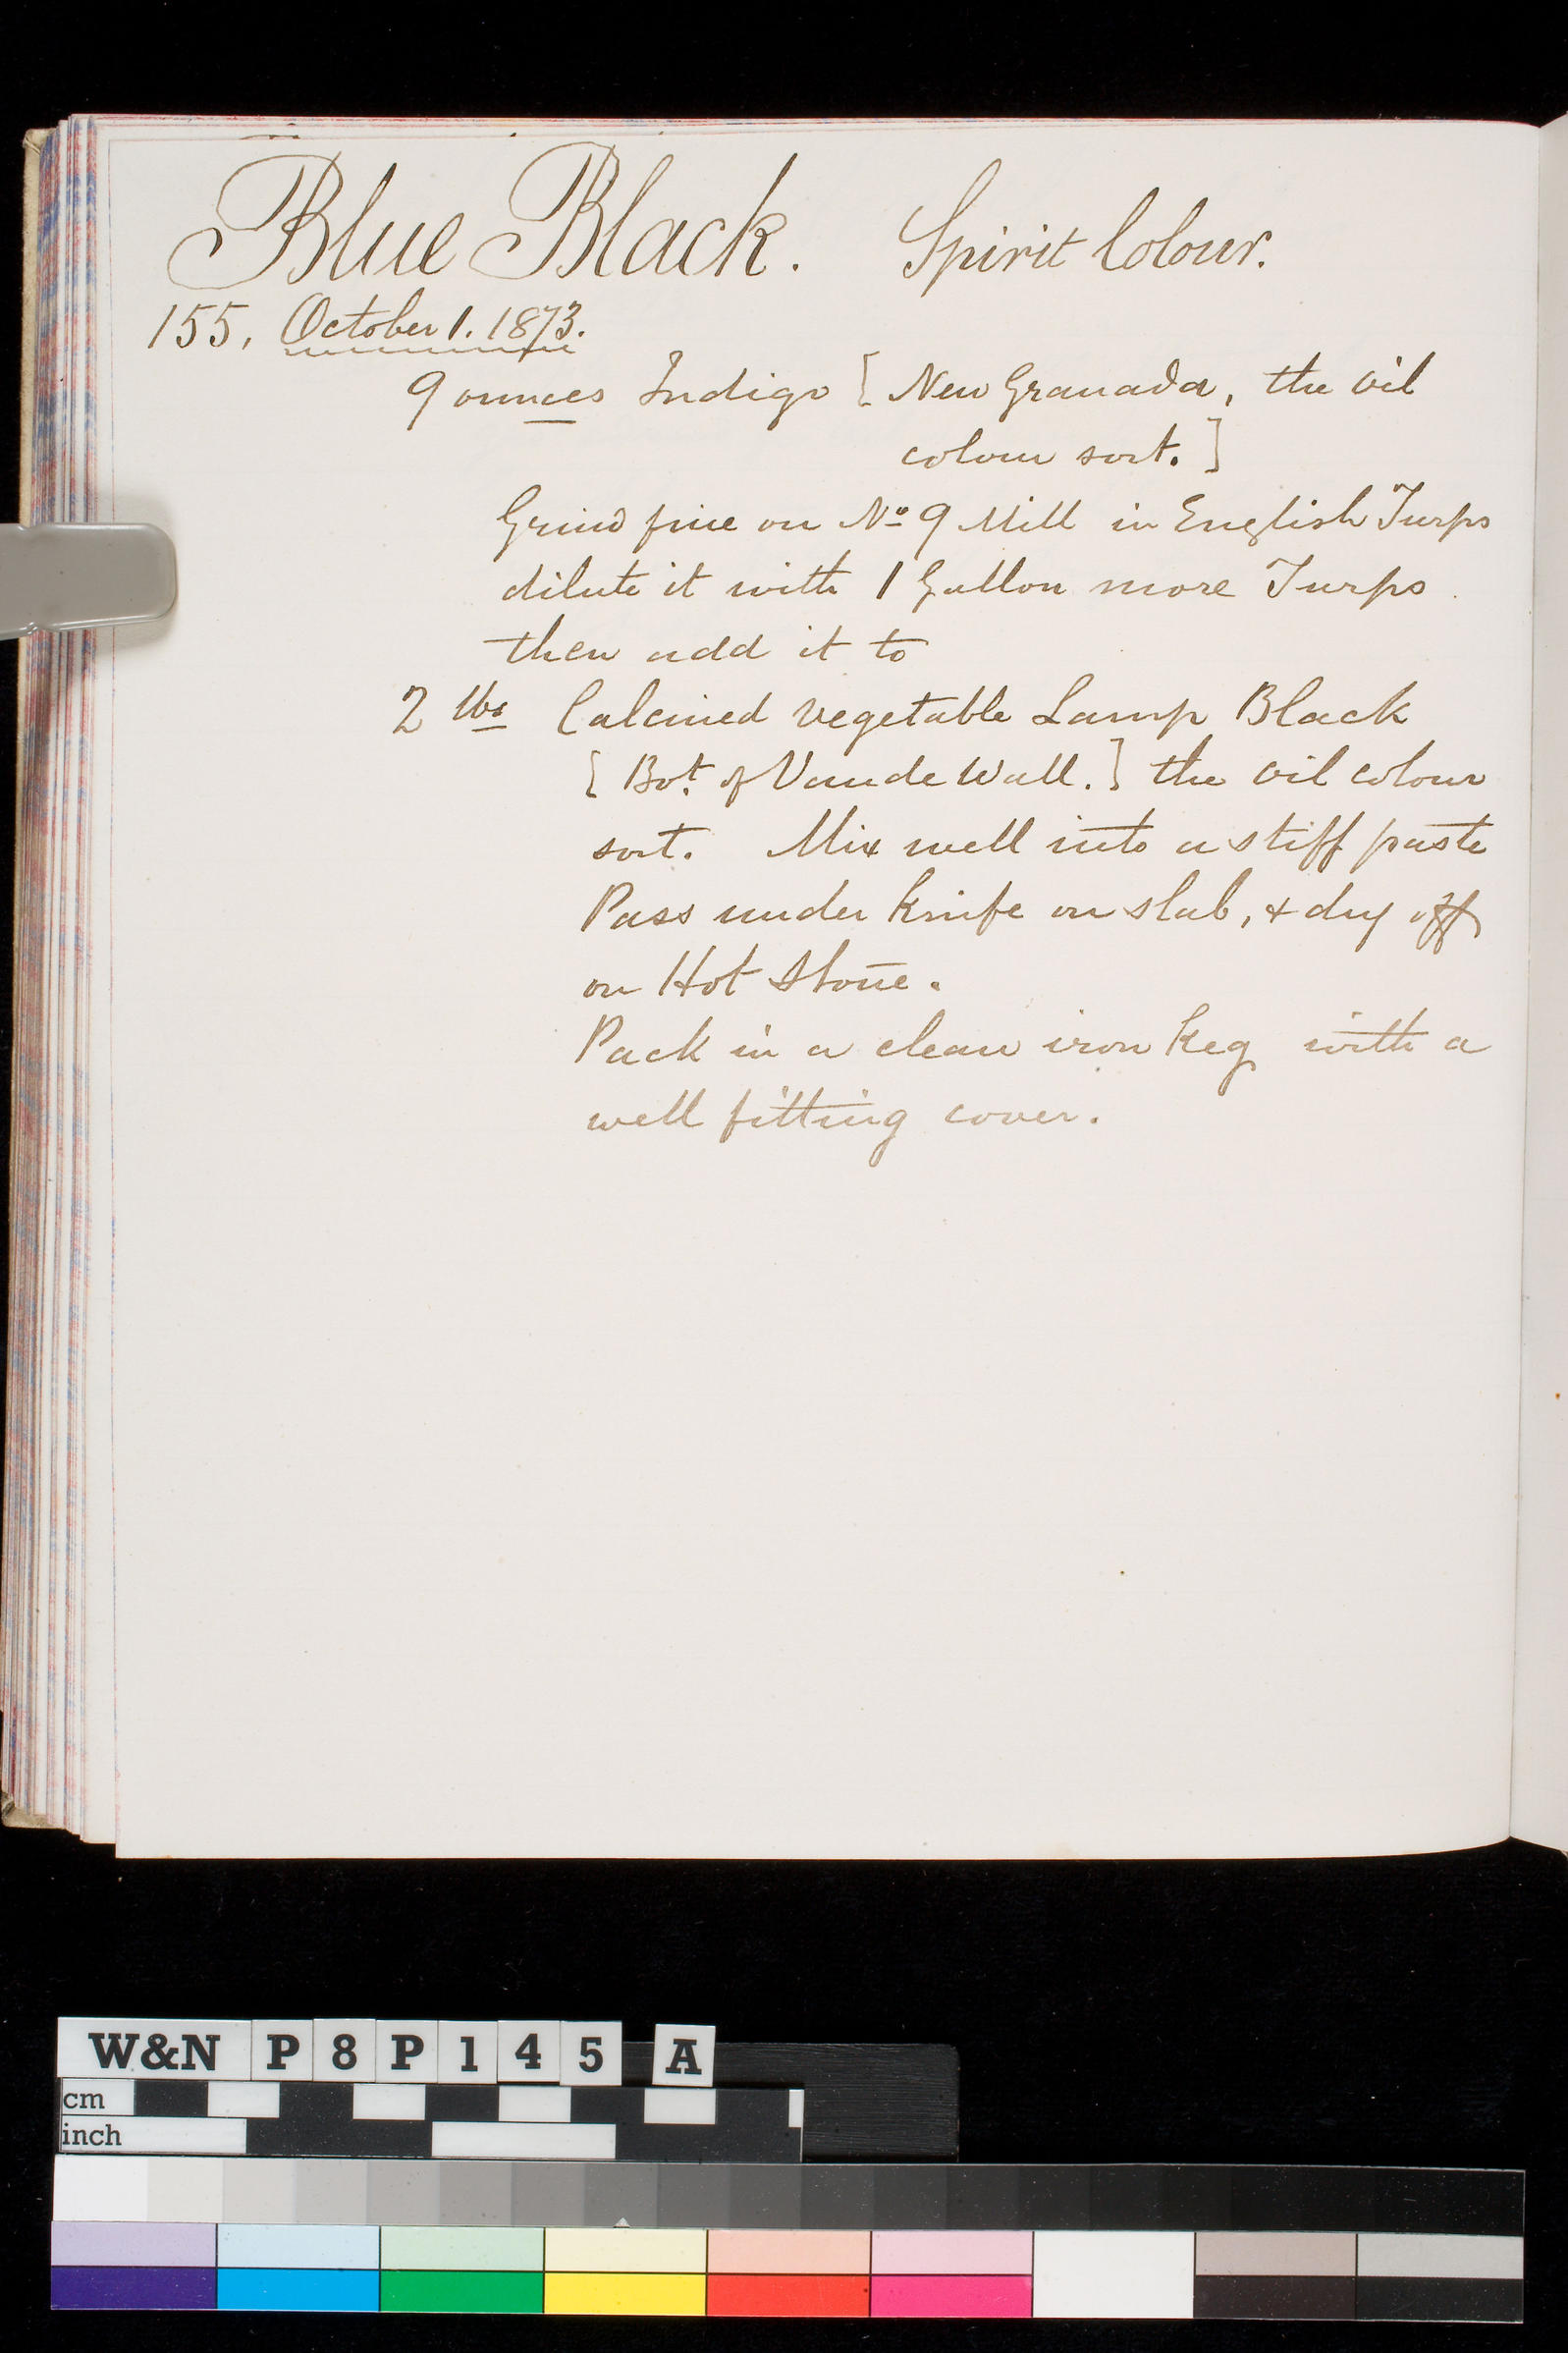 Blue Black. Spirit Colour.
155, October 1. 1873.
9 ounces Indigo [ New Granada, the oil
colour sort. ]
Grind fine on No 9 Mill in English Turps
dilute it with 1 Gallon more Turps
then add it to
2 lbs Calcined Vegetable Lamp Black
[ Bot. of Vande Wall. ] the oil colour
sort. Mix well into a stiff paste
Pass under Knife on slab, & dry off
on Hot Stone.
Pack in a clean iron Keg with a
well fitting cover.
W&N P8P145 A
cm
inch